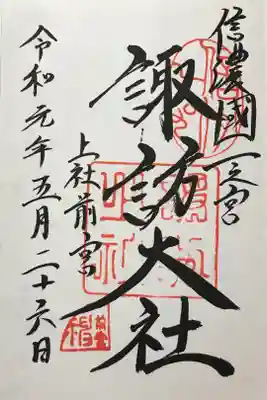 信濃國一之宮
諏訪大社
上社前宮
令和元年五月二十六日